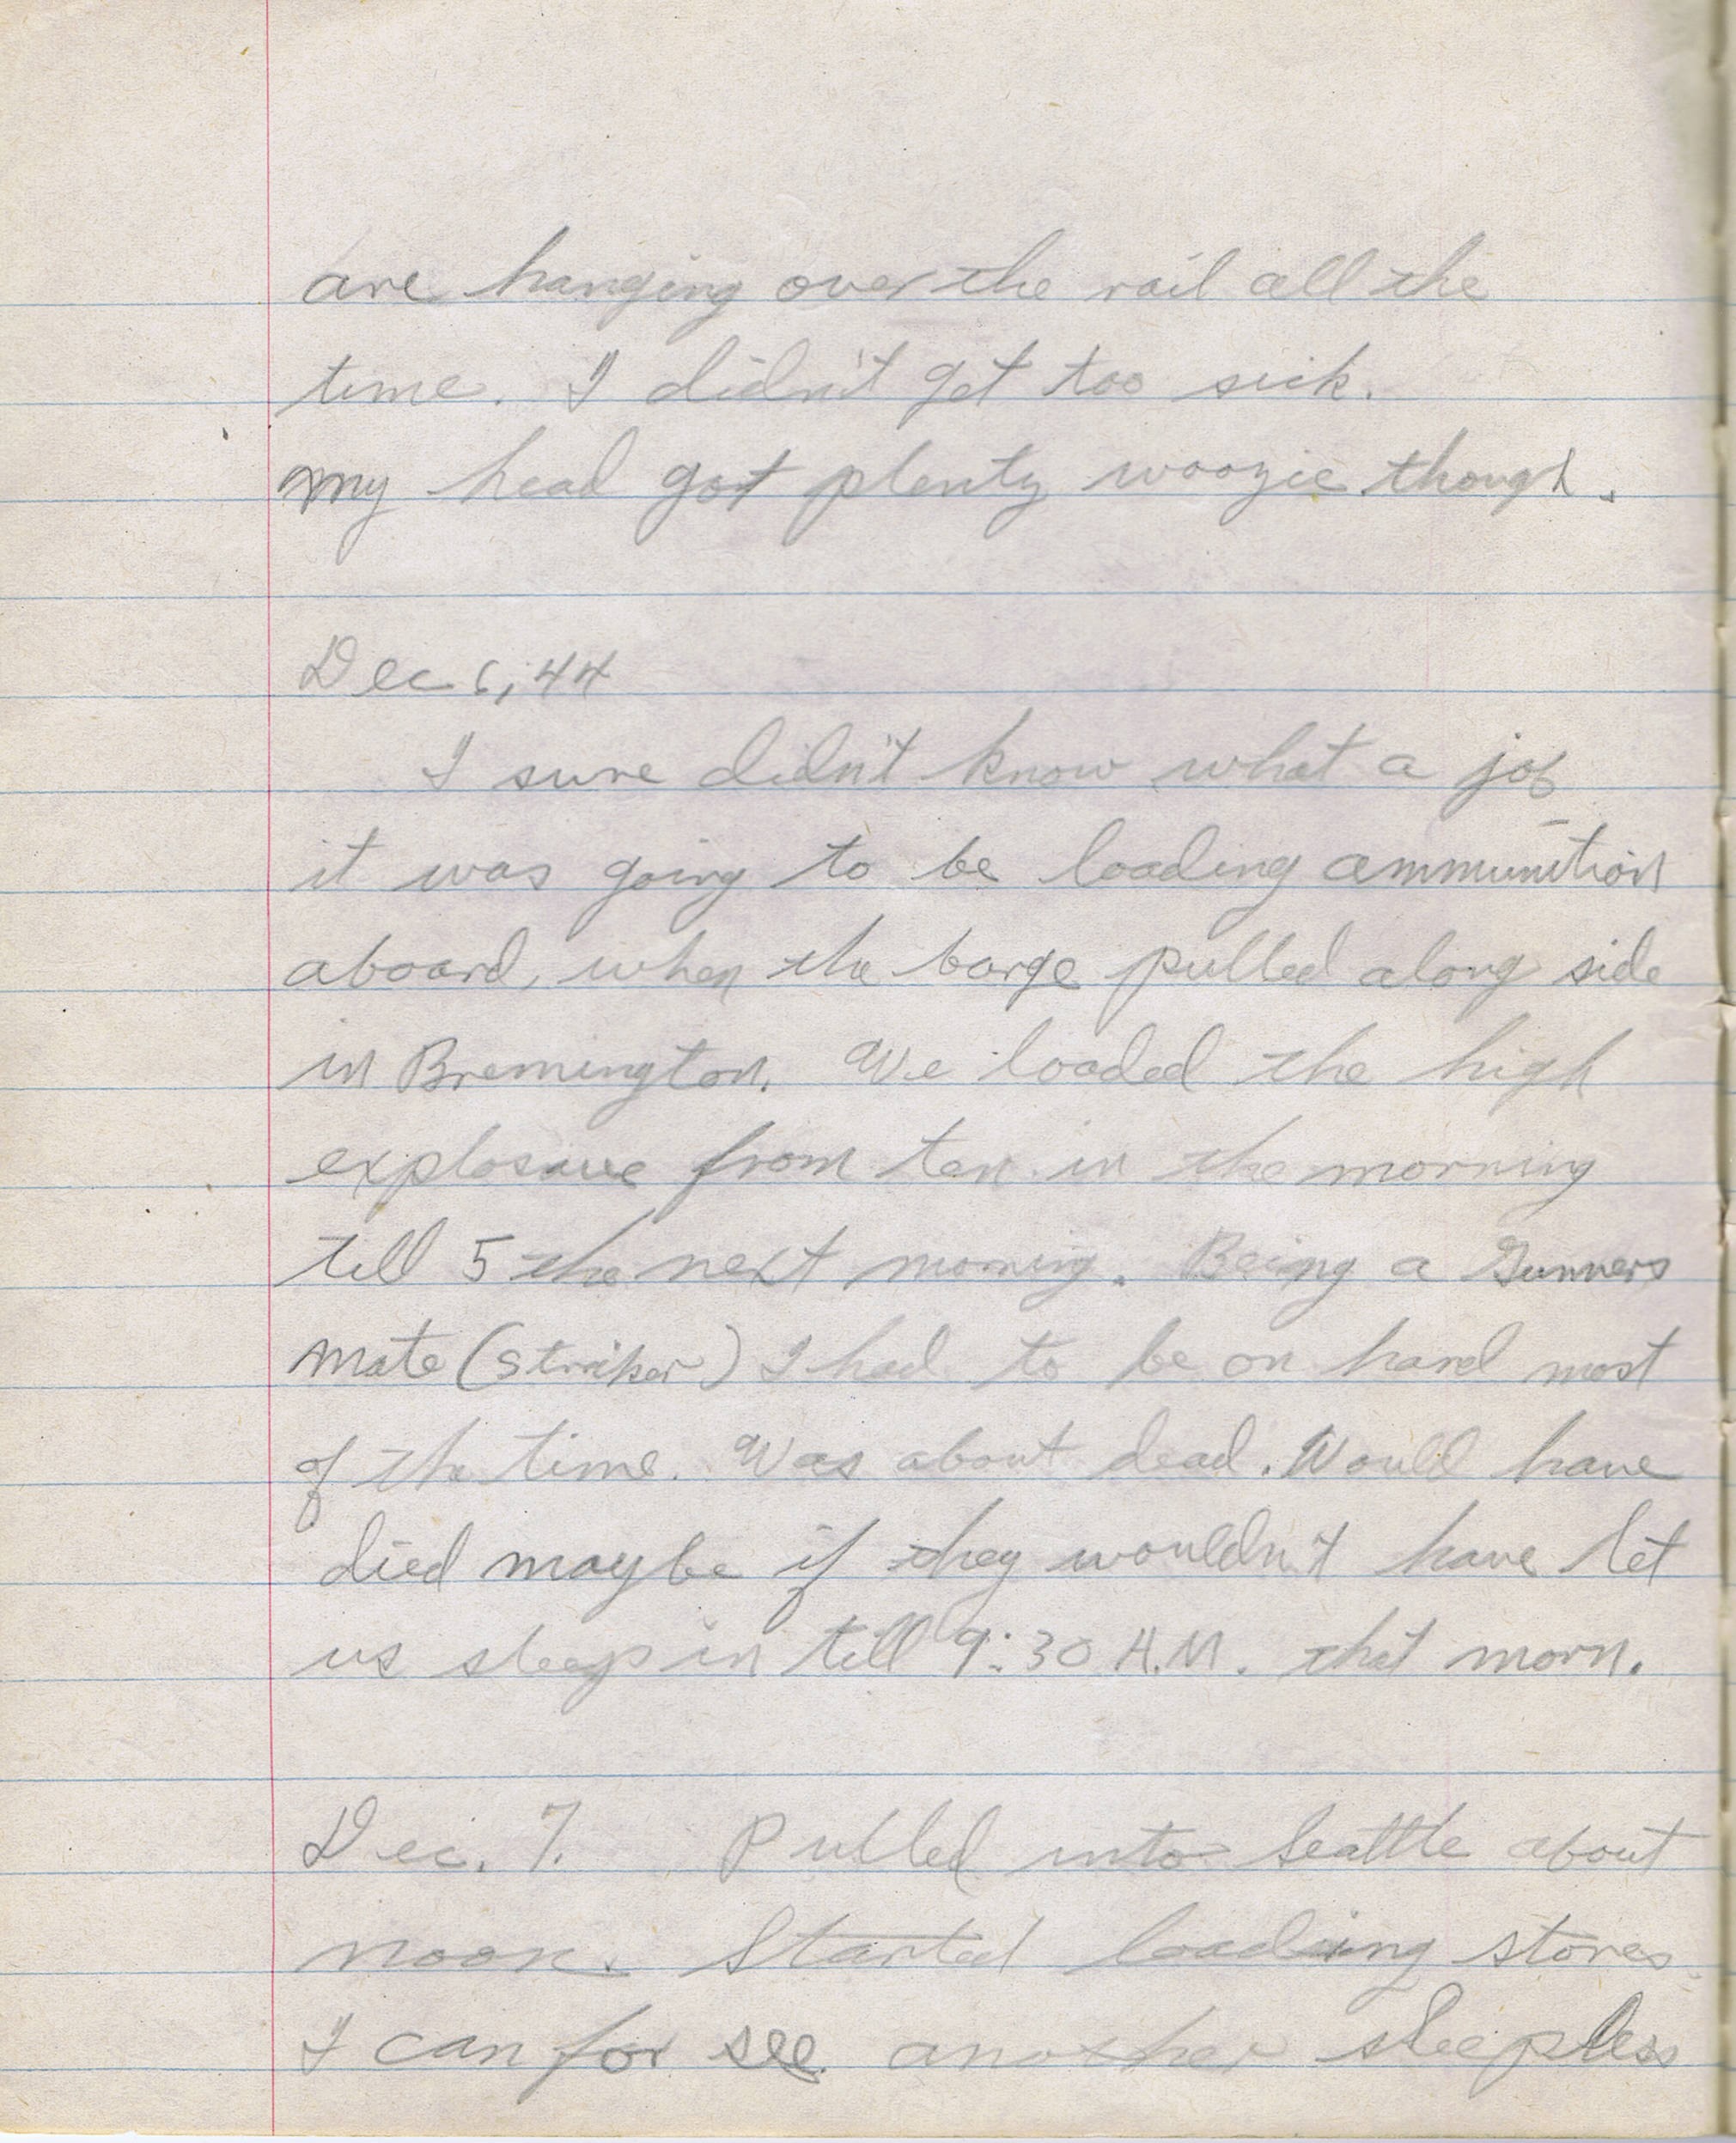 are hanging over the rail all the
time. I didn't get too sick.
my head got plenty woozie though.
Dec 6, 44
I sure didn't know what a job
it was going to be loading ammunition
aboard, when the barge pulled along side
in Bremington. We loaded the high
explosive from ten in the morning
till 5 the next morning. Being a Gunners
mate (striker) I had to be on hand most
of the time. Was about dead. Would have
died maybe if they wouldn't have let
us sleep in till 9:30 A.M. that morn.
Dec. 7. Pulled into Seattle about
noon. Started loading stores.
I can for see another sleepless